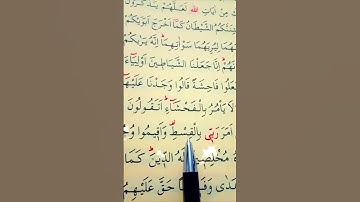 مِنْ اٰيَاتِ اللّٰهِ لَعَلَّهُمْ يَذَّكَّرُونَ
الشَّيْطَانُ كَمَٓا اَخْرَجَ اَبَوَيْكُمْ
لِيُرِيَهُمَا سَوْاٰتِهِمَاۜ اِنَّهُ يَرٰيكُمْ
اِنَّا جَعَلْنَا الشَّيَاطٖينَ اَوْلِيَٓاءَ
فَاحِشَةً قَالُوا وَجَدْنَا عَلَيْهَٓا
لَا يَأْمُرُ بِالْفَحْشَٓاءِۜ اَتَقُولُونَ
اَمَرَ رَبّٖى بِالْقِسْطِ وَاَقٖيمُوا
مُخْلِصٖينَ لَهُ الدّٖينَۜ كَمَا
حَقَّ عَلَيْهِمُ